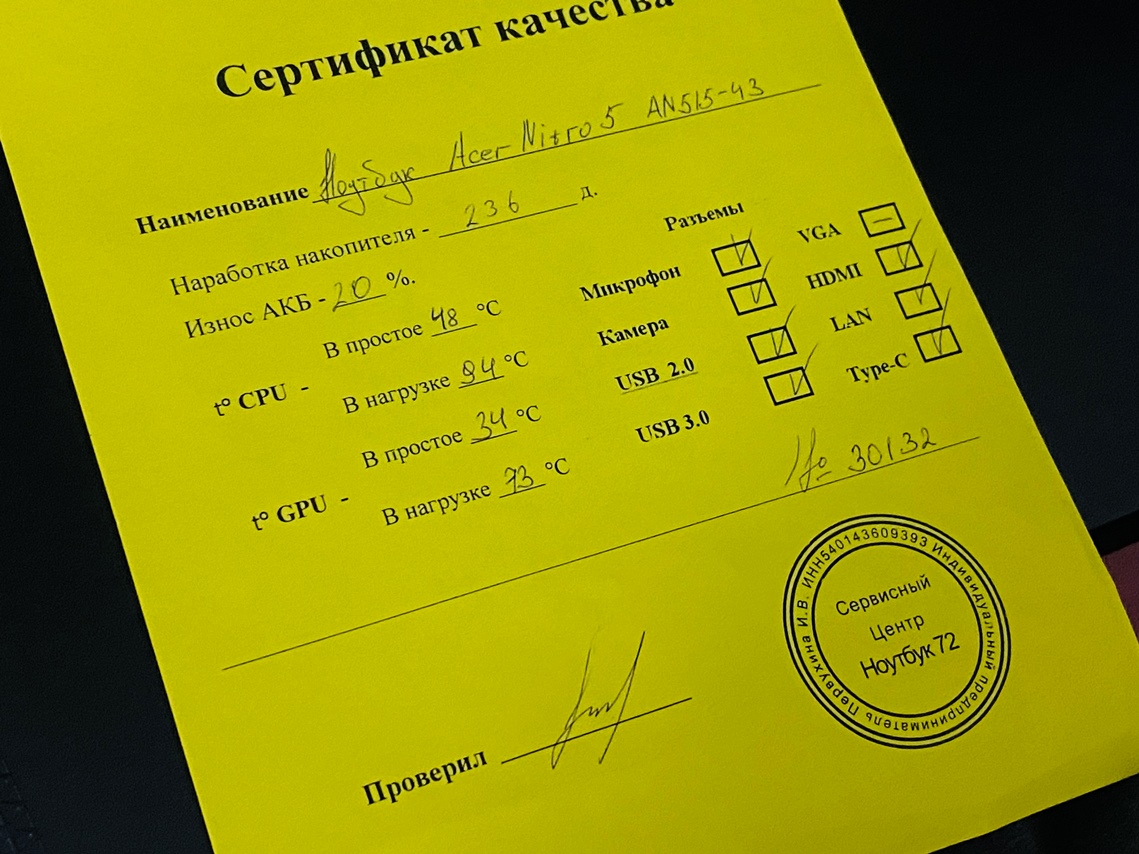 Сертификат качества
Наименование Ноутбук Acer Nitro 5 AN515-43
Наработка накопителя - 236 д.
Износ АКБ - 20 %.
t° CPU -
В простое 48 °C
В нагрузке 94 °C
t° GPU -
В простое 34 °C
В нагрузке 73 °C
Разъемы
Микрофон
Камера
USB 2.0
USB 3.0
VGA
HDMI
LAN
Type-C
30132
Проверил
Индивидуальный предприниматель Первухина И.В. ИНН540143609393
Сервисный
Центр
Ноутбук 72